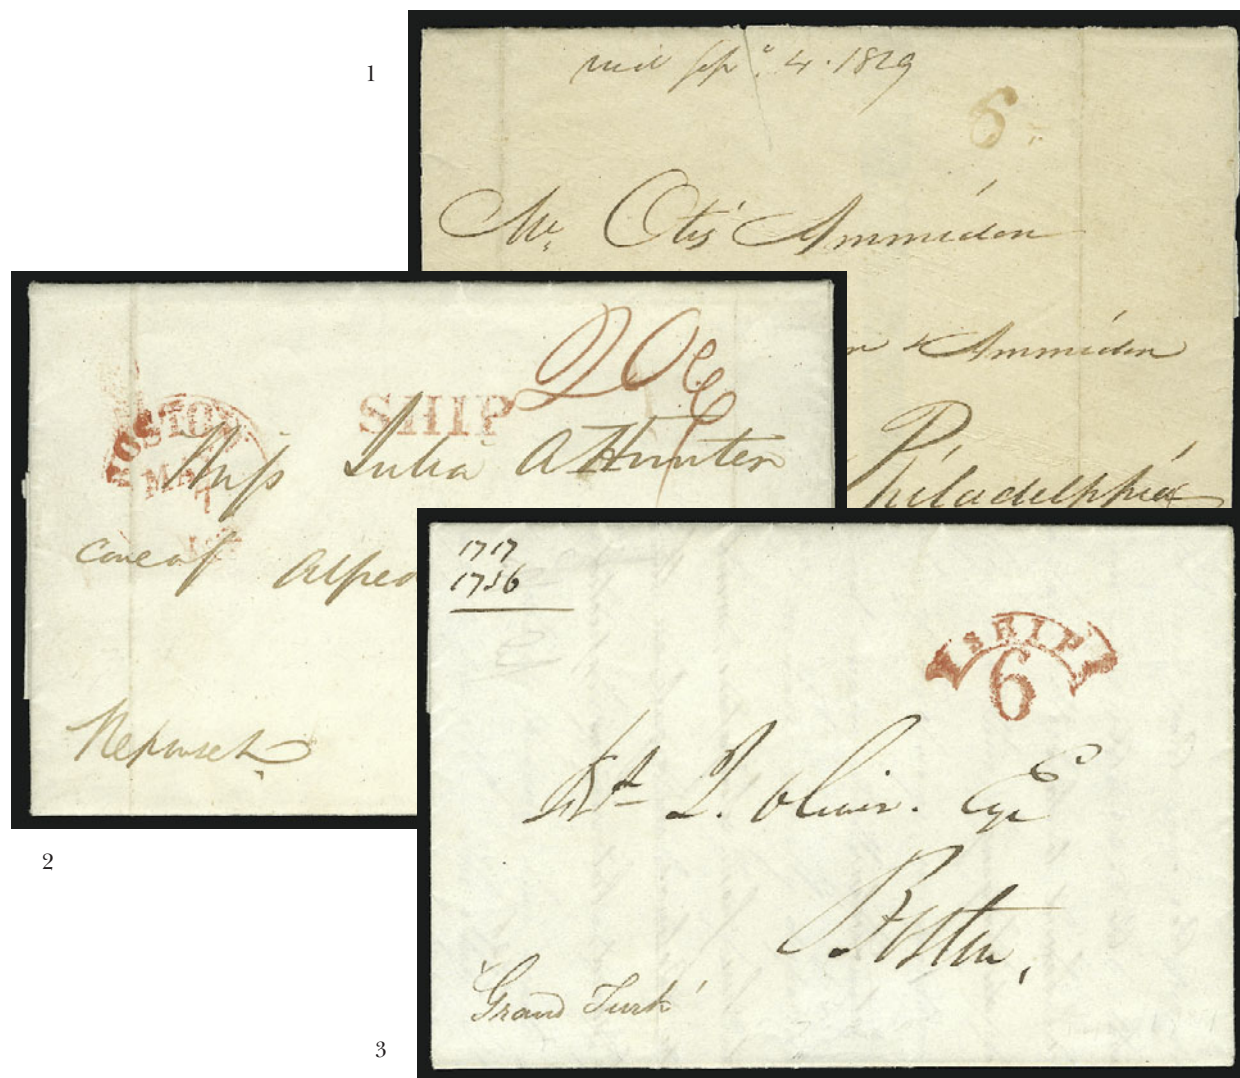 1
Sepr. 4. 1829
6
Mr. Otis Ammidon
n & Ammidon
Philadelphia
BOSTON
MAY
SHIP
20
Miss Julia A Hunter
care of Alfred
Neponset
1717
1756
SHIP
6
Esqr
Boston,
"Grand Turk"
2
3